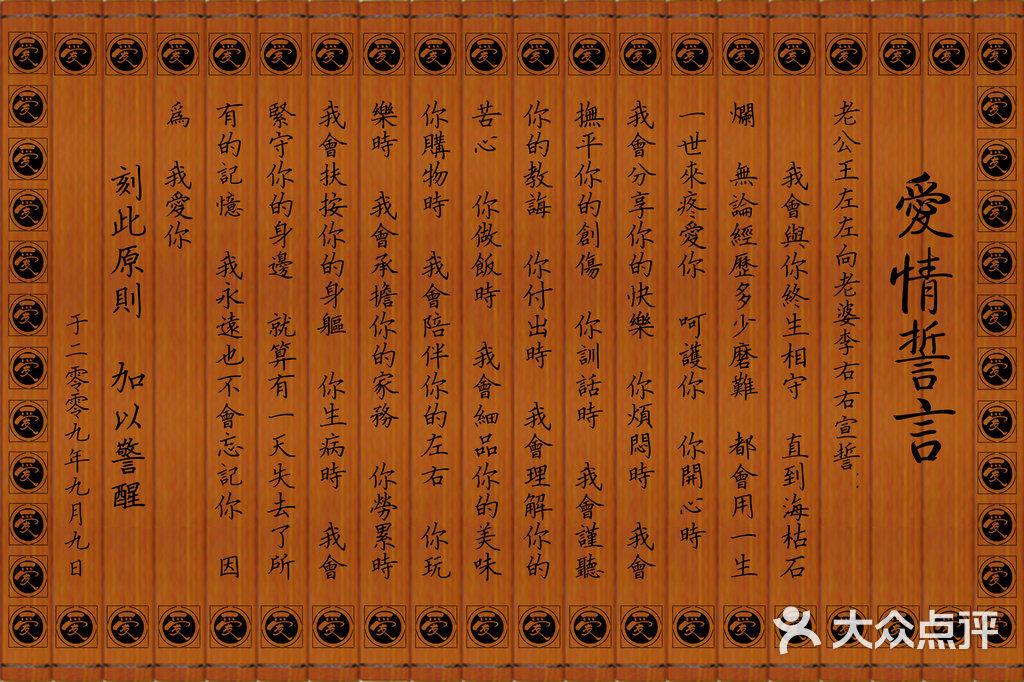 愛情誓言
老公王左左向老婆李右右宣誓：
我會與你終生相守　直到海枯石
爛　無論經歷多少磨難　都會用一生
一世來疼愛你　呵護你　你開心時
我會分享你的快樂　你煩悶時　我會
撫平你的創傷　你訓話時　我會謹聽
你的教誨　你付出時　我會理解你的
苦心　你做飯時　我會細品你的美味
你購物時　我會陪伴你的左右　你玩
樂時　我會承擔你的家務　你勞累時
我會扶按你的身軀　你生病時　我會
緊守你的身邊　就算有一天失去了所
有的記憶　我永遠也不會忘記你　因
爲　我愛你
刻此原則　加以警醒
于二零零九年九月九日
大众点评